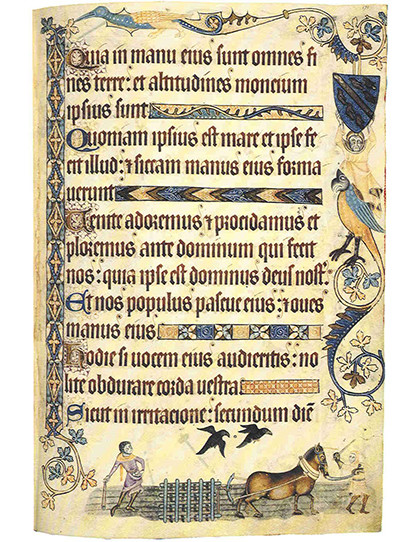 Quia in manu eius sunt omnes fi
nes terre: et altitudines moncium
ipsius sunt
Quoniam ipsius est mare et ipse fe
cit illud: ⁊ siccam manus eius forma
uerunt
Uenite adoremus ⁊ procidamus et
ploremus ante dominum qui fecit
nos: quia ipse est dominus deus nosť.
Et nos populus pascue eius: ⁊ oues
manus eius
Hodie si uocem eius audieritis: no
lite obdurare corda uestra:
Sicut in irritacione: secundum diē